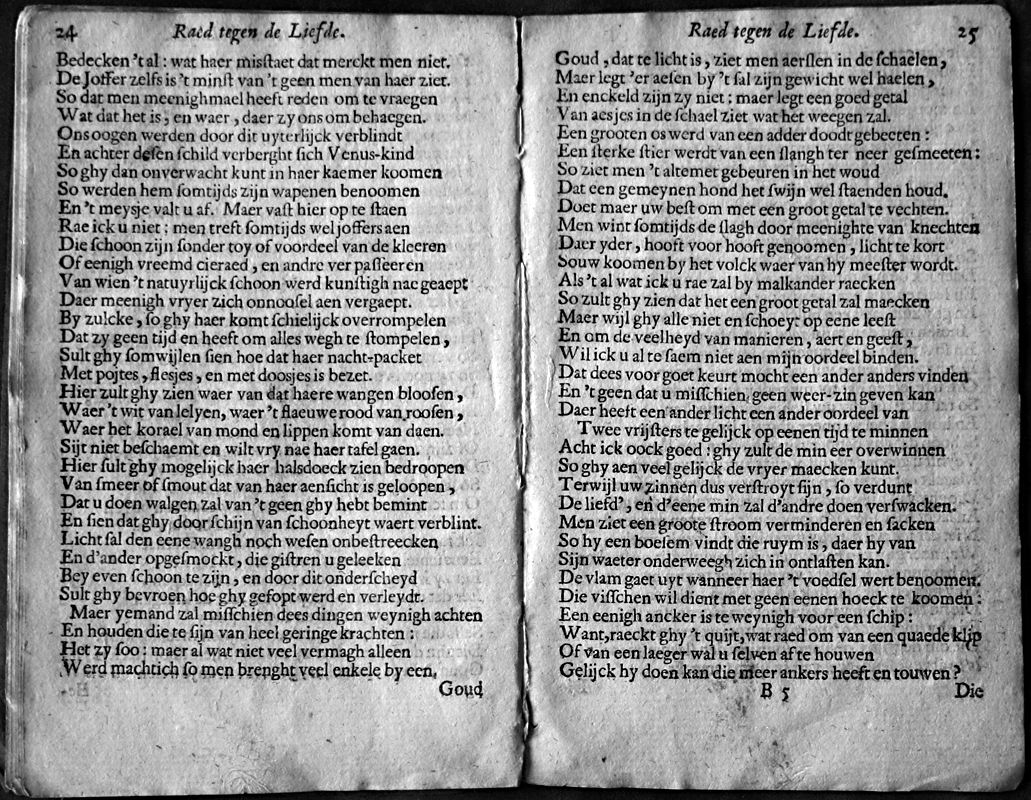 24 Raed tegen de Liefde.
Bedecken 't al: wat haer misstaet dat merckt men niet.
De Joffer zelfs is 't minst van 't geen men van haer ziet.
So dat men meenighmael heeft reden om te vraegen
Wat dat het is, en waer, daer zy ons om behaegen.
Ons oogen werden door dit uyterlijck verblindt
En achter desen schild verberght sich Venus-kind
So ghy dan onverwacht kunt in haer kaemer koomen
So werden hem somtijds zijn wapenen benoomen
En 't meysje valt u af. Maer vast hier op te staen
Rae ick u niet: men treft somtijds wel joffers aen
Die schoon zijn sonder toy of voordeel van de kleeren
Of eenigh vreemd cieraed, en andre ver passeeren
Van wien 't natuyrlijck schoon werd kunstigh nac geaept
Daer meenigh vryer zich onnoosel aen vergaept.
By zulcke, so ghy haer komt schielijck overrompelen
Dat zy geen tijd en heeft om alles wegh te stompelen,
Sult ghy somwijlen sien hoe dat haer nacht-packet
Met pojtes, flesjes, en met doosjes is bezet.
Hier zult ghy zien waer van dat haere wangen bloosen,
Waer 't wit van lelyen, waer 't flaeuwe rood van roosen,
Waer het korael van mond en lippen komt van daen.
Sijt niet beschaemt en wilt vry nae haer tafel gaen.
Hier sult ghy mogelijck haer halsdoeck zien bedroopen
Van smeer of smout dat van haer aensicht is geloopen,
Dat u doen walgen zal van 't geen ghy hebt bemint
En sien dat ghy door schijn van schoonheyt waert verblint.
Licht sal den eene wangh noch wesen onbestreecken
En d'ander opgesmockt, die gistren u geleeken
Bey even schoon te zijn, en door dit onderscheyd
Sult ghy bevroen hoe ghy gefopt werd en verleydt.
Maer yemand zal misschien dees dingen weynigh achten
En houden die te sijn van heel geringe krachten:
Het zy soo: maer al wat niet veel vermagh alleen
Werd machtich so men brenght veel enkele by een.
Goud
Raed tegen de Liefde. 25
Goud, dat te licht is, ziet men aerslen in de schaelen,
Maer legt 'er aesen by 't sal zijn gewicht wel haelen,
En enckeld zijn zy niet: maer legt een goed getal
Van aesjes in de schael ziet wat het weegen zal.
Een grooten os werd van een adder doodt gebeeten:
Een sterke stier werdt van een slangh ter neer gesmeeten:
So ziet men 't altemet gebeuren in het woud
Dat een gemeynen hond het swijn wel staenden houd.
Doet maer uw best om met een groot getal te vechten.
Men wint somtijds de slagh door meenighte van knechten
Daer yder, hooft voor hooft genoomen, licht te kort
Souw koomen by het volck waer van hy meester wordt.
Als 't al wat ick u rae zal by malkander raecken
So zult ghy zien dat het een groot getal zal maecken
Maer wijl ghy alle niet en schoeyt op eene leest
En om de veelheyd van manieren, aert en geest,
Wil ick u al te saem niet aen mijn oordeel binden.
Dat dees voor goet keurt mocht een ander anders vinden
En 't geen dat u misschien geen weer-zin geven kan
Daer heeft een ander licht een ander oordeel van
Twee vrijsters te gelijck op eenen tijd te minnen
Acht ick oock goed: ghy zult de min eer overwinnen
So ghy aen veel gelijck de vryer maecken kunt.
Terwijl uw zinnen dus verstroyt sijn, so verdunt
De liefd', en d'eene min zal d'andre doen verswacken.
Men ziet een groote stroom verminderen en sacken
So hy een boesem vindt die ruym is, daer hy van
Sijn waeter onderweegh zich in ontlasten kan.
De vlam gaet uyt wanneer haer 't voedsel wert benoomen.
Die visschen wil dient met geen eenen hoeck te koomen:
Een eenigh ancker is te weynigh voor een schip:
Want, raeckt ghy 't quijt, wat raed om van een quaede klip
Of van een laeger wal u selven af te houwen
Gelijck hy doen kan die meer ankers heeft en touwen?
B 5 Die